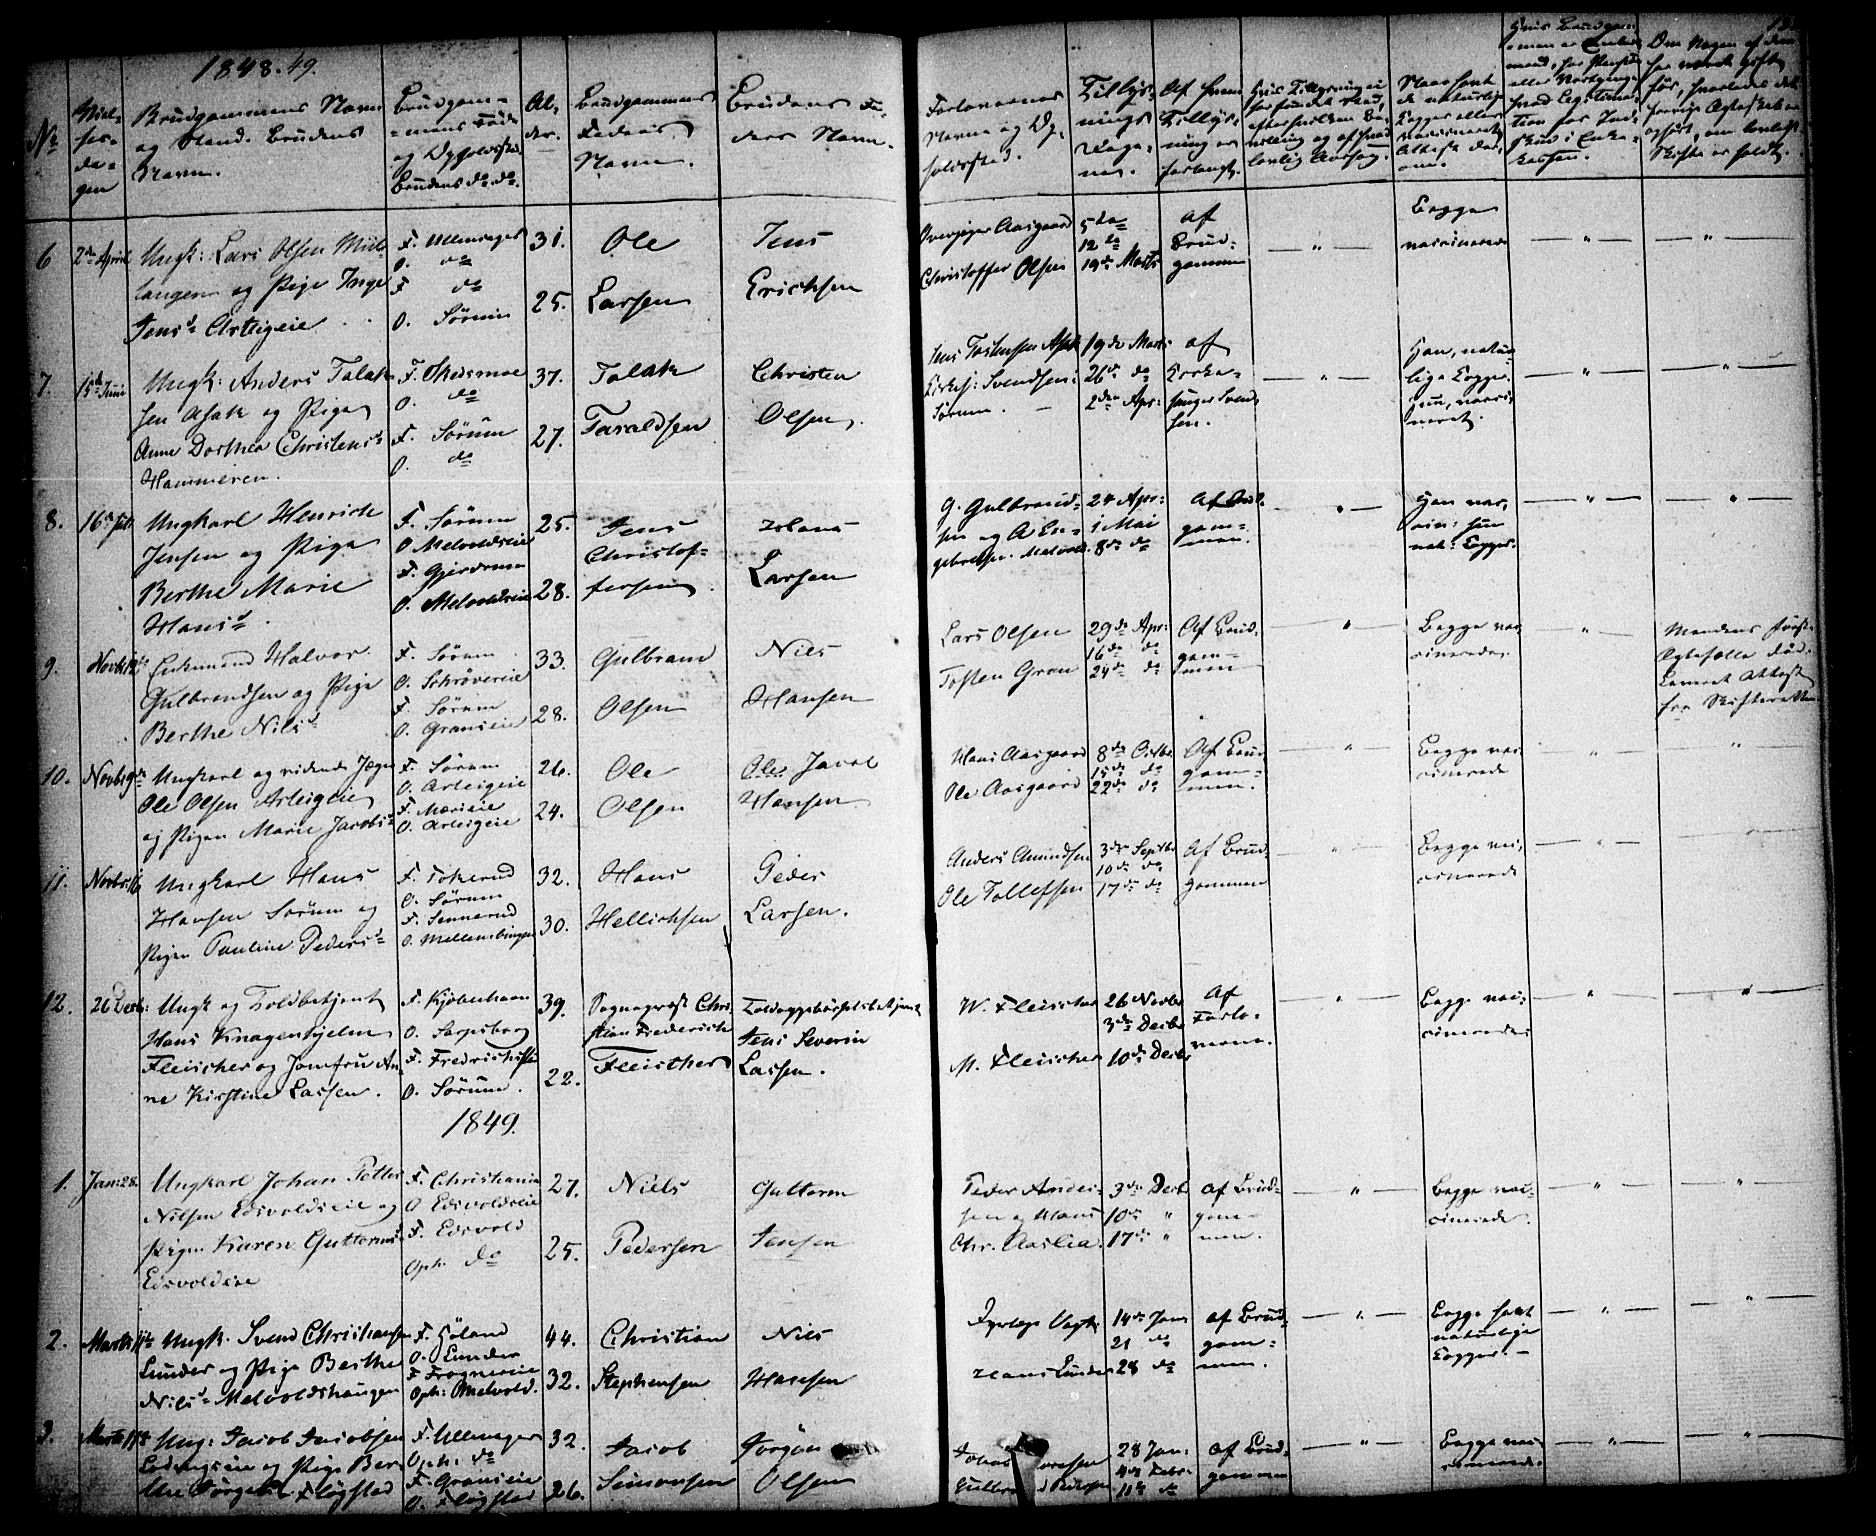 1848.49.
No
Viel-
ses-
da-
gen
Brudgommens Navn
og Stand. Brudens
Navn.
Brudgom-
mens Føde
og Opholdssted
Brudens do do.
Al-
der.
Brudgommens
Faders
Navn.
Brudens Fa-
ders Navn.
Forlovernes
Navne og Op-
holdssted.
Tillys-
nings
Dage-
ne.
Af hvem
Tillys-
ning er
forlangt.
6
2de April
Ungk: Lars Olsen
og Pige Inge
Jensd Arteigeie
F. Ullensager
O. do
F do
O. Sörum
31.
25.
Ole
Larsen
Jens
Erichsen
Overjæger Aasgaard
Christoffer Olsen
5te
12te
19de Marts
af
Brud-
gommen
"
Begge
vaccinerede
"
"
7.
15de Juni
Ungk: Anders Talak-
sen Asak og Pige
Anne Dorthea Christensd
Hammeren.
F. Skedsmoe
O. do
F. Sörum
O. do
37.
27.
Talak
Taraldsen
Christen
Olsen
Jens Torstensen Asak
Kirkes: Svendsen
Sörum.
19de Marts
26de do
2den Apr:
af
Kirke-
sanger Svend-
sen.
"
Han, natur-
lige Kopper.
Hun, vacci-
neret.
"
"
8.
16de Juli
Ungkarl Henrich
Jensen og Pige
Berthe Marie
Hansd.
F. Sörum
O. Melvoldseie
F. Gjerdrum
O. Melvoldseie
25.
28.
Jens
Christof-
fersen
Hans
Larsen
G. Gulbrand-
sen og A En-
gebretsen. Melvold
24 Apr:
1 Mai
8de do
Af Brud-
gom-
men.
"
Han vac-
cin: hun
nat: Kopper.
"
"
9.
Novbr 12te
Enkemand Halvor
Gulbrandsen og Pige
Berthe Nilsd
F. Sörum
O. Schrövereie
F. Sörum
O. Granseie
33.
28.
Gulbrand
Olsen
Nils
Hansen
Lars Olsen
Tosten Gran
29de Apr:
16de do
24de do
Af Brud-
gom-
men
"
Begge vac-
cinerede.
"
Mandens første
Ægtefælle død.
Leveret Attest
fra Skifteretten.
10.
Novbr 9de
Ungkarl og ridende Jæger
Ole Olsen Arteigeie
og Pigen Marie Jacobsd
F. Sörum
O. Arteigeie
F. Mæreie
O. Arteigeie
26.
24.
Ole
Olsen
Ole Jacob
Hansen
Hans Aasgaard
Ole Aasgaard
8de Octbr
15de do
22de do
Af Brud-
gom-
men.
"
Begge vac-
cinerede
"
"
11.
Novbr 16
Ungkarl Hans
Hansen Sörum og
Pigen Pauline Pedersd
F. Tokerud
O. Sörum
F. Sennerud
O. Mellembingen
32.
30.
Hans
Hellichsen
Peder
Larsen.
Anders Amundsen
Ole Tollefsen
3die Septbr
10de do
17de do
Af Brud-
gommen
"
Begge vac-
cinerede
"
"
12.
26 Decb:
Ungk og Toldbetjent
Hans Knagenhjelm
Fleischer og Jomfru An-
ne Kirstine Lassen.
F. Kjöbenhavn
O. Sarpsborg
F. Fredrichsstad
O. Sörum.
39.
22.
Sognepræst Chri-
stian Frederich
Fleischer
Toldopsynsbetjent
Jens Severin
Lassen.
W. Fleischer
M. Fleischer
26 Novbr
3die Decbr
10de Decbr
Af
Forlo-
verne.
"
Begge vac-
cinerede
"
"
1849.
1.
Jan: 28.
Ungkarl Johan Petter
Nilsen Edsvoldseie og
Pigen Karen Guttormsd
Edsvoldeie
F. Christiania
O Edsvoldseie
F. Edsvold
Oph. do
27.
25.
Niels
Pedersen
Guttorm
Jensen
Peder Ander-
sen og Hans
Chr. Aaslia.
3die Decb
10de "
17de "
af Brud-
gom-
men.
"
Begge vac-
cinerede.
"
"
2.
Marts 11te
Ungk. Svend Christiansen
Lunder og Pige Berthe
Nilsd Melvoldshaugen
F. Höland
O. Lunder
F Frogнereie
Oph: Melvold.
44.
32.
Christian
Stephensen
Nils
Hansen
Hans Lunder
14de Jan:
21 do
28 do
af Brud-
gom-
men.
"
Begge havt
naturlige
Kopper.
"
"
3.
Marts 11te
Ung: Jacob Jacobsen
og Pige Ber-
the Jörgensd Flugstad
F. Ullensager
Oph: do
F. Granseie
O. Flugstad
32.
26.
Jacob
Simonsen
Jörgen
Olsen
28 Jan:
4de Febr:
11te do
af Brud-
gommen
"
Begge vac-
cinerede.
"
"